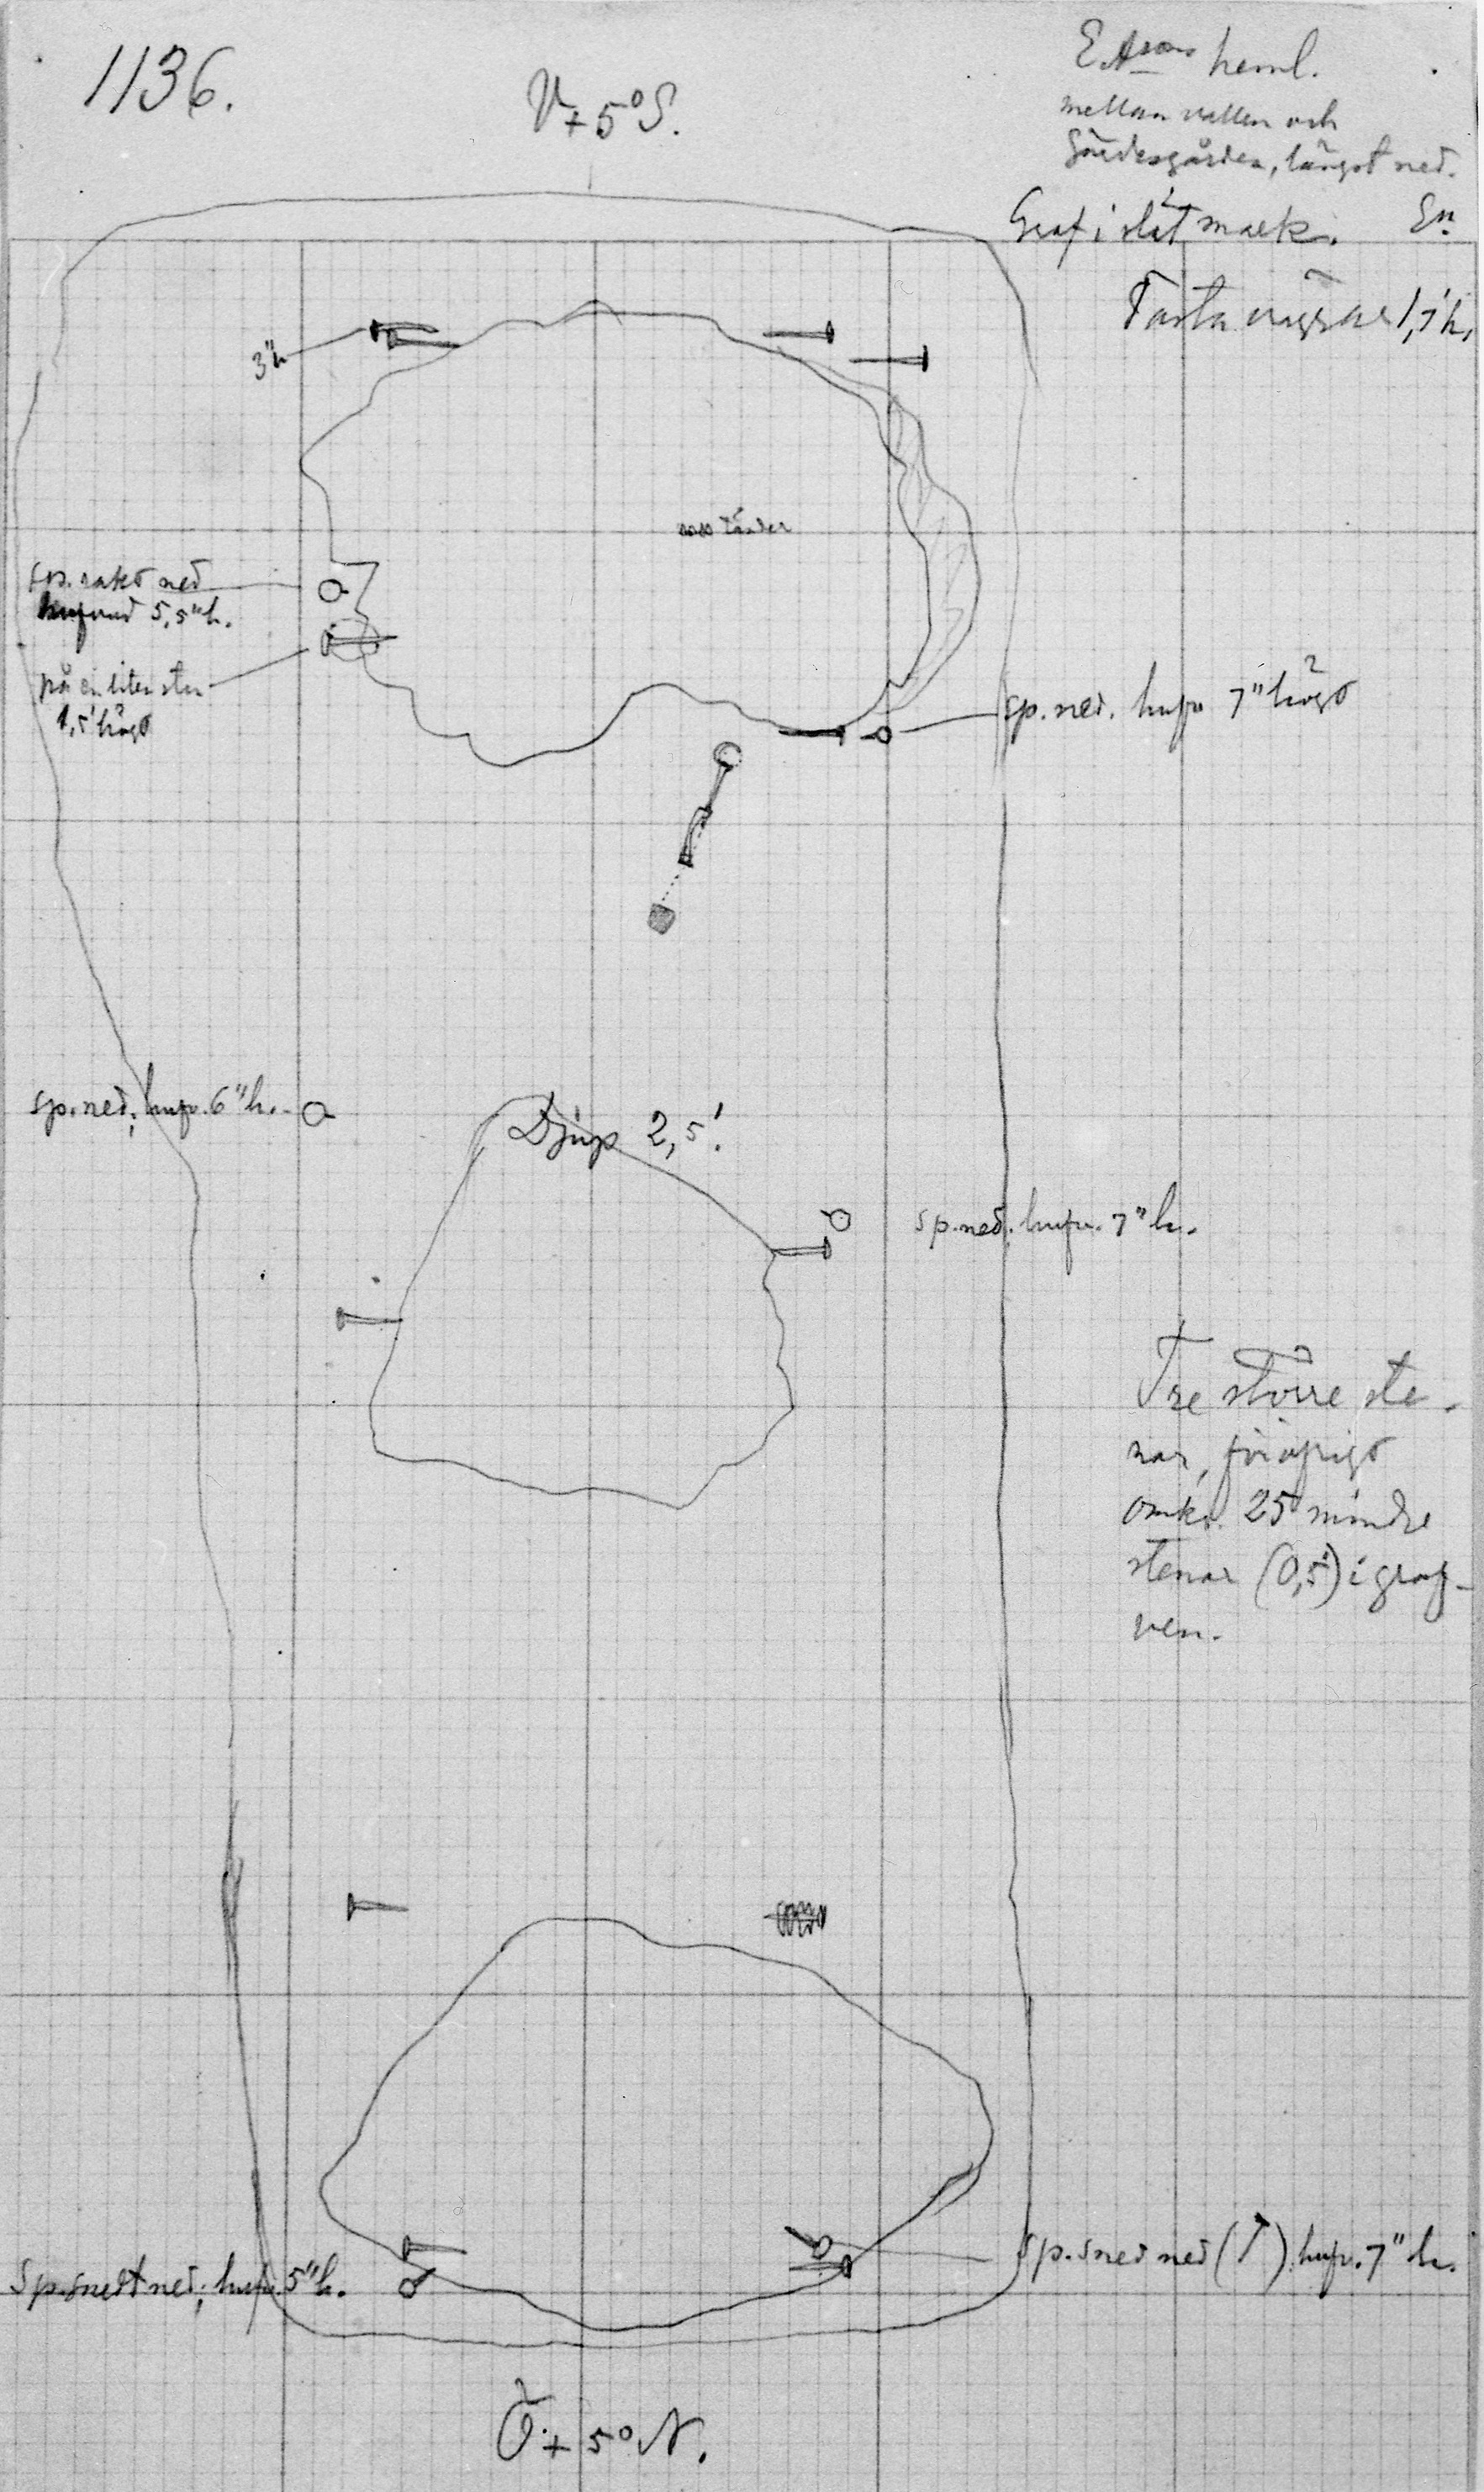 1136.
V + 5° S.
heml.
mellan vallen och
Gärdesgården, längst ned.
Graf i slät mark. En.
Fasta väggar 1,7' h.
3" h
tänder
sp. rakt ned
hufvud 5,5" h.
på en liten sten
1,5' högt
sp. ned. hufv 7" högt
sp. ned; hufv. 6" h.
Djup 2,5'.
sp. ned. hufv. 7" h.
Tre större ste-
nar, föröfrigt
omkr. 25 mindre
stenar (0,5') i graf-
ven.
sp. snedt ned; hufv. 5" h.
sp. sned ned (↑) hufv. 7" h.
Ö. + 5° N.